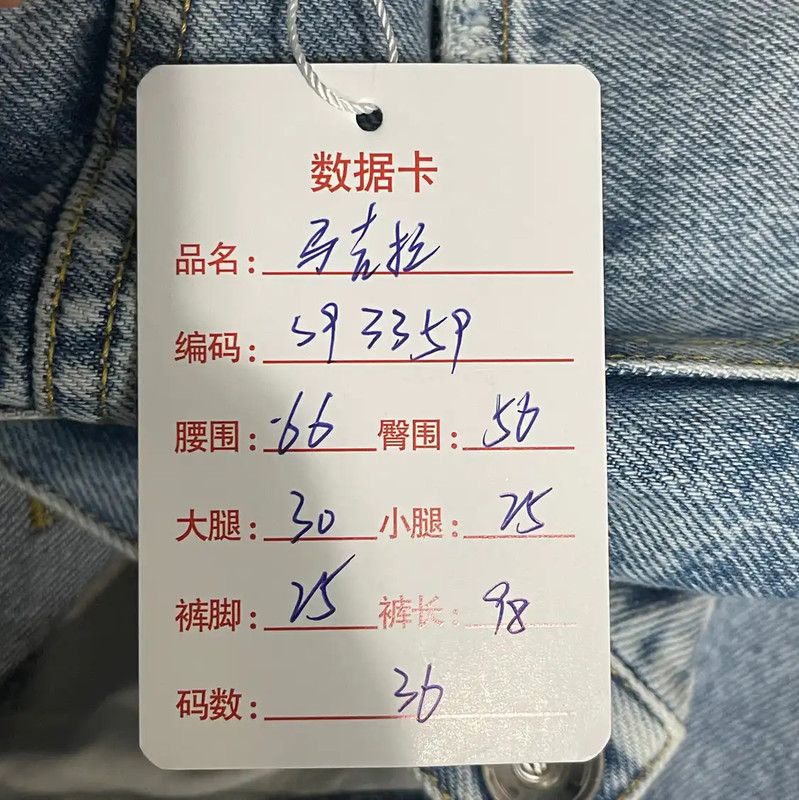 数据卡
品名: 马吉拉
编码: 593359
腰围: 66 臀围: 56
大腿: 30 小腿: 25
裤脚: 25 裤长: 98
码数: 36